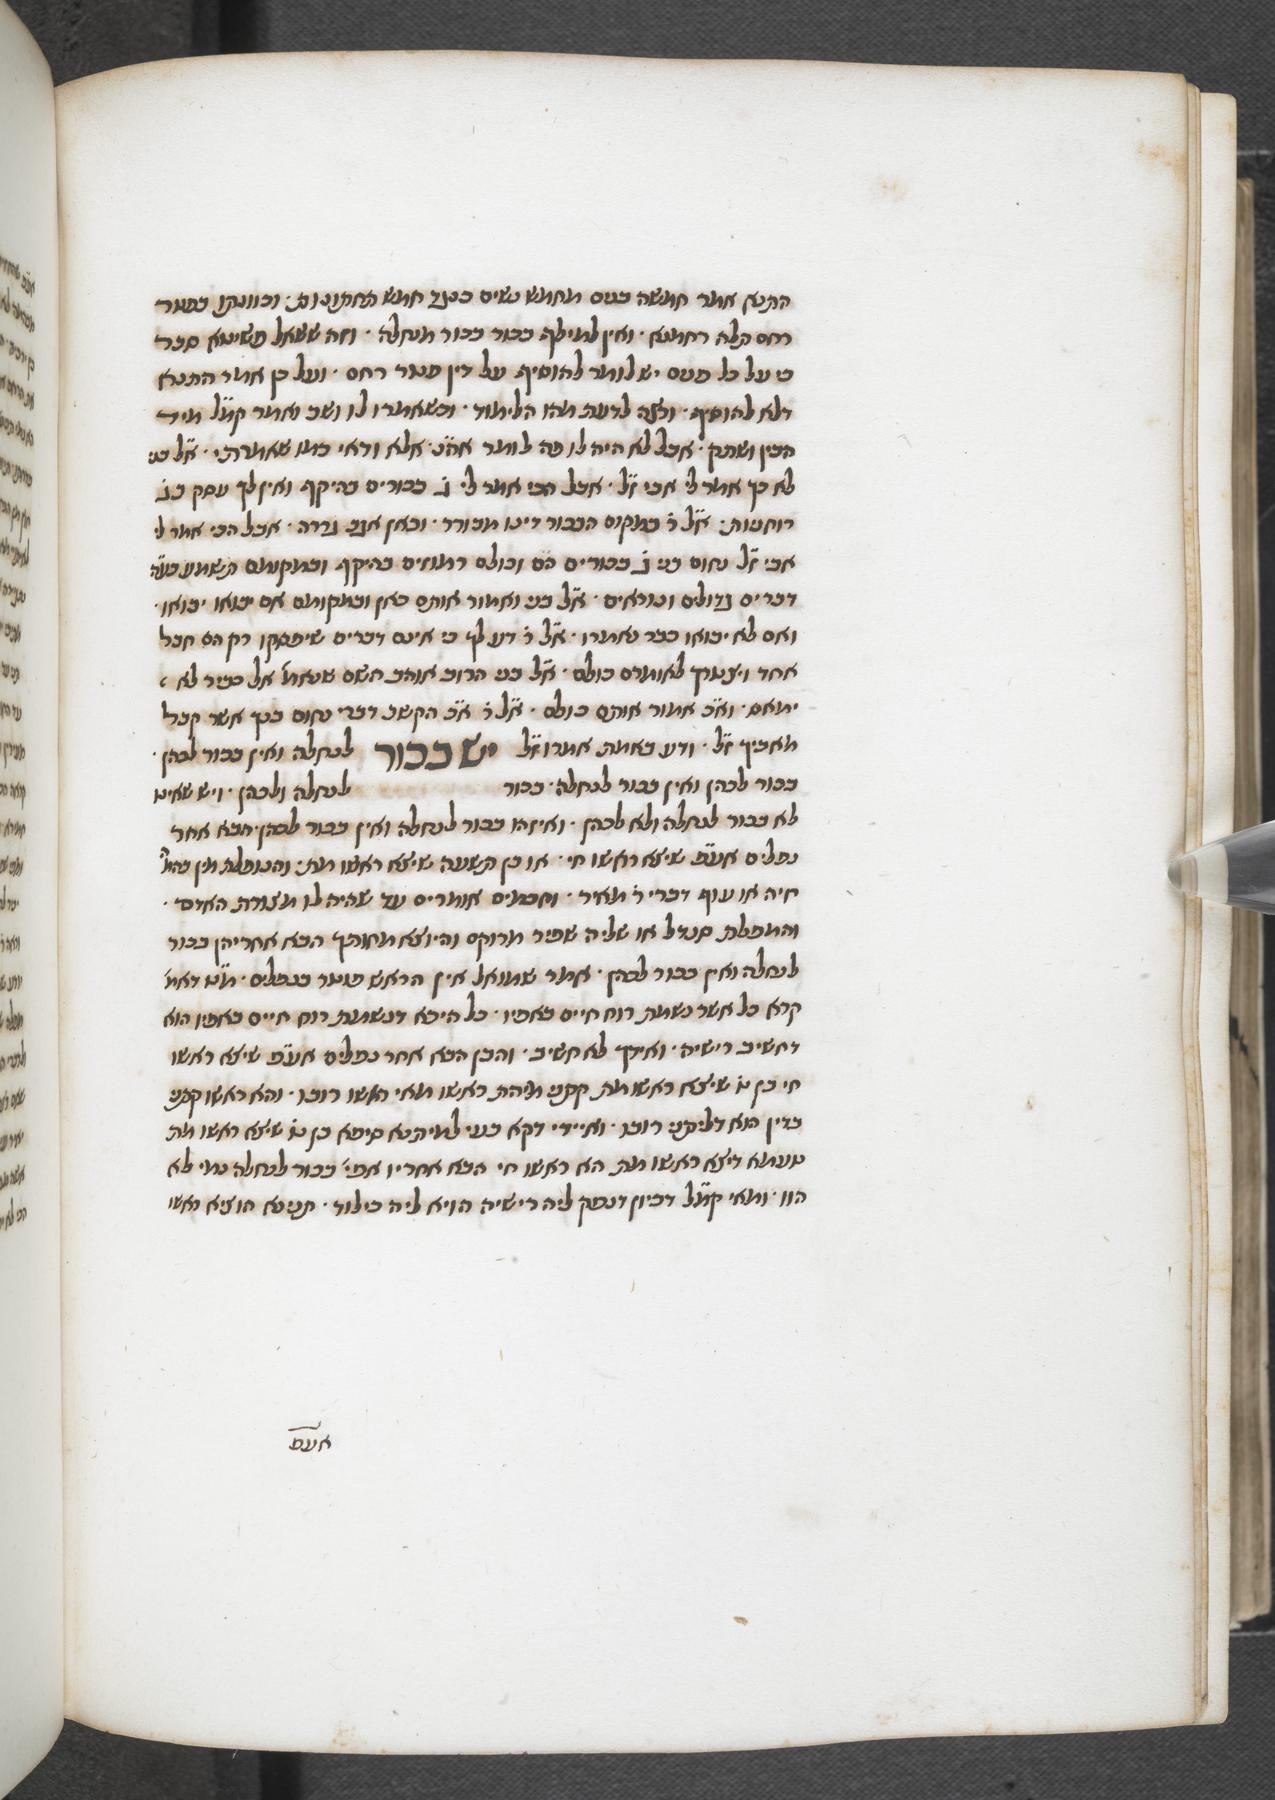 התנא אמר חמשה בנים מחמש נשים כנגד חמש תחתונות: וכוונתו בפטר
רחם תלה רחמנא · ואין למילף בכור בכור מנחלה · וזה ששאל פשיטא סבר
כי על כל פנים יש לומר להוסיף על דין פטר רחם · ועל כן אמר התנא
דלא להוסיף · ורצה לדעת מהו הלימוד · וכשאמרו לו ושב ואמר קמ״ל מיד
הבין ושתק · אבל לא היה לו פה לומר · אלא ודאי כמו שאמרתי · א״ל בני
לא כך אמר לי אבי ז״ל · אבל הכי אמר לי ג׳ בכורים בהיקף ואין לך עסק בג׳
רוחניות: א״ל ר׳ במקום הבכור דינו מבורר · וכאן אגב גררה · אבל הכי אמר לי
אבי ז״ל נחום בני ג׳ בכורים הם וכולם רמוזים בהיקף ובמקומם תשמע
דברים גדולים ונוראים · א״ל בני ואמור אותם כאן ובמקומם אם יבואו יבואו ·
ואם לא יבואו כבר נאמרו · א״ל ר׳ דע לך כי אינם דברים שיפסקו רק הם חבל
אחד ויצטרך לאומרם כולם · א״ל בני הרוב אוהב השם שנאמ׳ אל כביר לא
ימאס · וא״כ אמור אותם כולם · א״ל ר׳ א״כ הקשב דברי נחום בנך אשר קבל
מאביך ז״ל · ודע באמת אמרו ז״ל יש בכור לנחלה ואין בכור לכהן ·
בכור לכהן ואין בכור לנחלה · בכור לנחלה ולכהן · ויש שאינו
לא בכור לנחלה ולא לכהן · ואיזהו בכור לנחלה ואין בכור לכהן הבא אחר
נפלים אע״פ שיצא ראשו חי · או בן תשעה שיצא ראשו מת: והמפלת מין בהמ׳
חיה או עוף דברי ר׳ מאיר · וחכמים אומרים עד שהיה לו מצורת האדם ·
והמפלת סנדל או שליה שפיר מרוקם והיוצא מחותך הבא אחריהן בכור
לנחלה ואין בכור לכהן · אמר שמואל אין הראש פוטר בנפלים · מ״ט דאמ׳
קרא כל אשר נשמת רוח חיים באפיו · כל היכא דנשמת רוח חיים באפיו הוא
דחשיב רישיה · ואידך לא חשיב · והבן הבא אחר נפלים אע״פ שיצא ראשו
חי בן ט׳ שיצא ראשו מת קתני מיהת ראשו מאי ראשו רובו · והא ראשו קתני
בדין הוא דליתני רובו · ואיידי דקא בעי למיתנא סיפא בן ט׳ שיצא ראשו מת
טעמא דיצא ראשו מת הא ראשו חי הבא אחריו אפי׳ בכור לנחלה נמי לא
הוי · ומאי קמ״ל דכיון דנפק ליה רישיה הויא ליה כילוד · תנינא הוציא ראשו
אע״פ